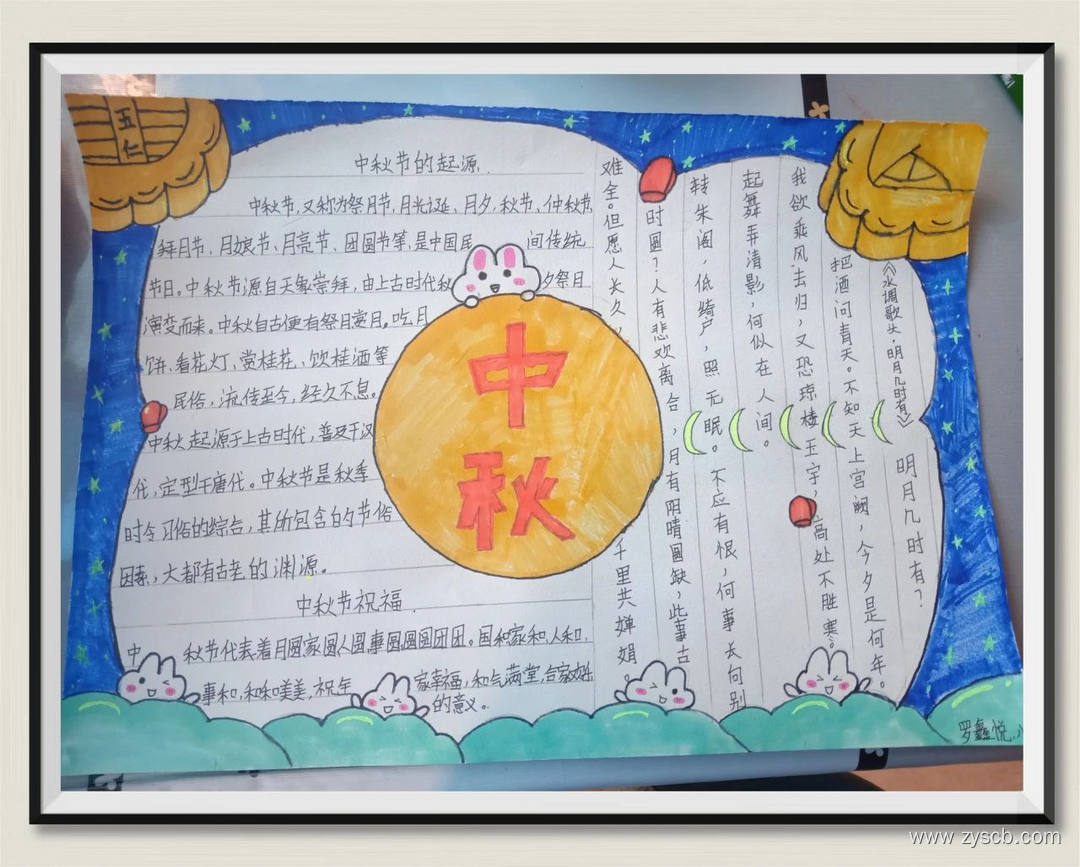 五仁
中秋节的起源.
中秋节,又称为祭月节,月光诞、月夕、秋节、仲秋节,
拜月节、月娘节、月亮节、团圆节等,是中国民间传统
节日。中秋节源自天象崇拜,由上古时代秋夕祭月
演变而来。中秋自古便有祭月赏月,吃月
饼、看花灯、赏桂花、饮桂酒等
民俗,流传至今,经久不息。
中秋起源于上古时代,普及于汉
代,定型于唐代。中秋节是秋季
时令习俗的综合,其所包含的节俗
因素,大都有古老的渊源。
中秋节祝福.
中秋节代表着月圆家圆人圆事圆圆圆团团。国和家和人和,
事和,和和美美,祝年家幸福,和气满堂,合家
的意义。
中
秋
《水调歌头·明月几时有》明月几时有?
把酒问青天。不知天上宫阙,今夕是何年。
我欲乘风去归,又恐琼楼玉宇,高处不胜寒。
起舞弄清影,何似在人间。
转朱阁,低绮户,照无眠。不应有恨,何事长向别
时圆?人有悲欢离合,月有阴晴圆缺,此事古
难全。但愿人长久,千里共婵娟。
罗鑫悦
www.zyscb.com